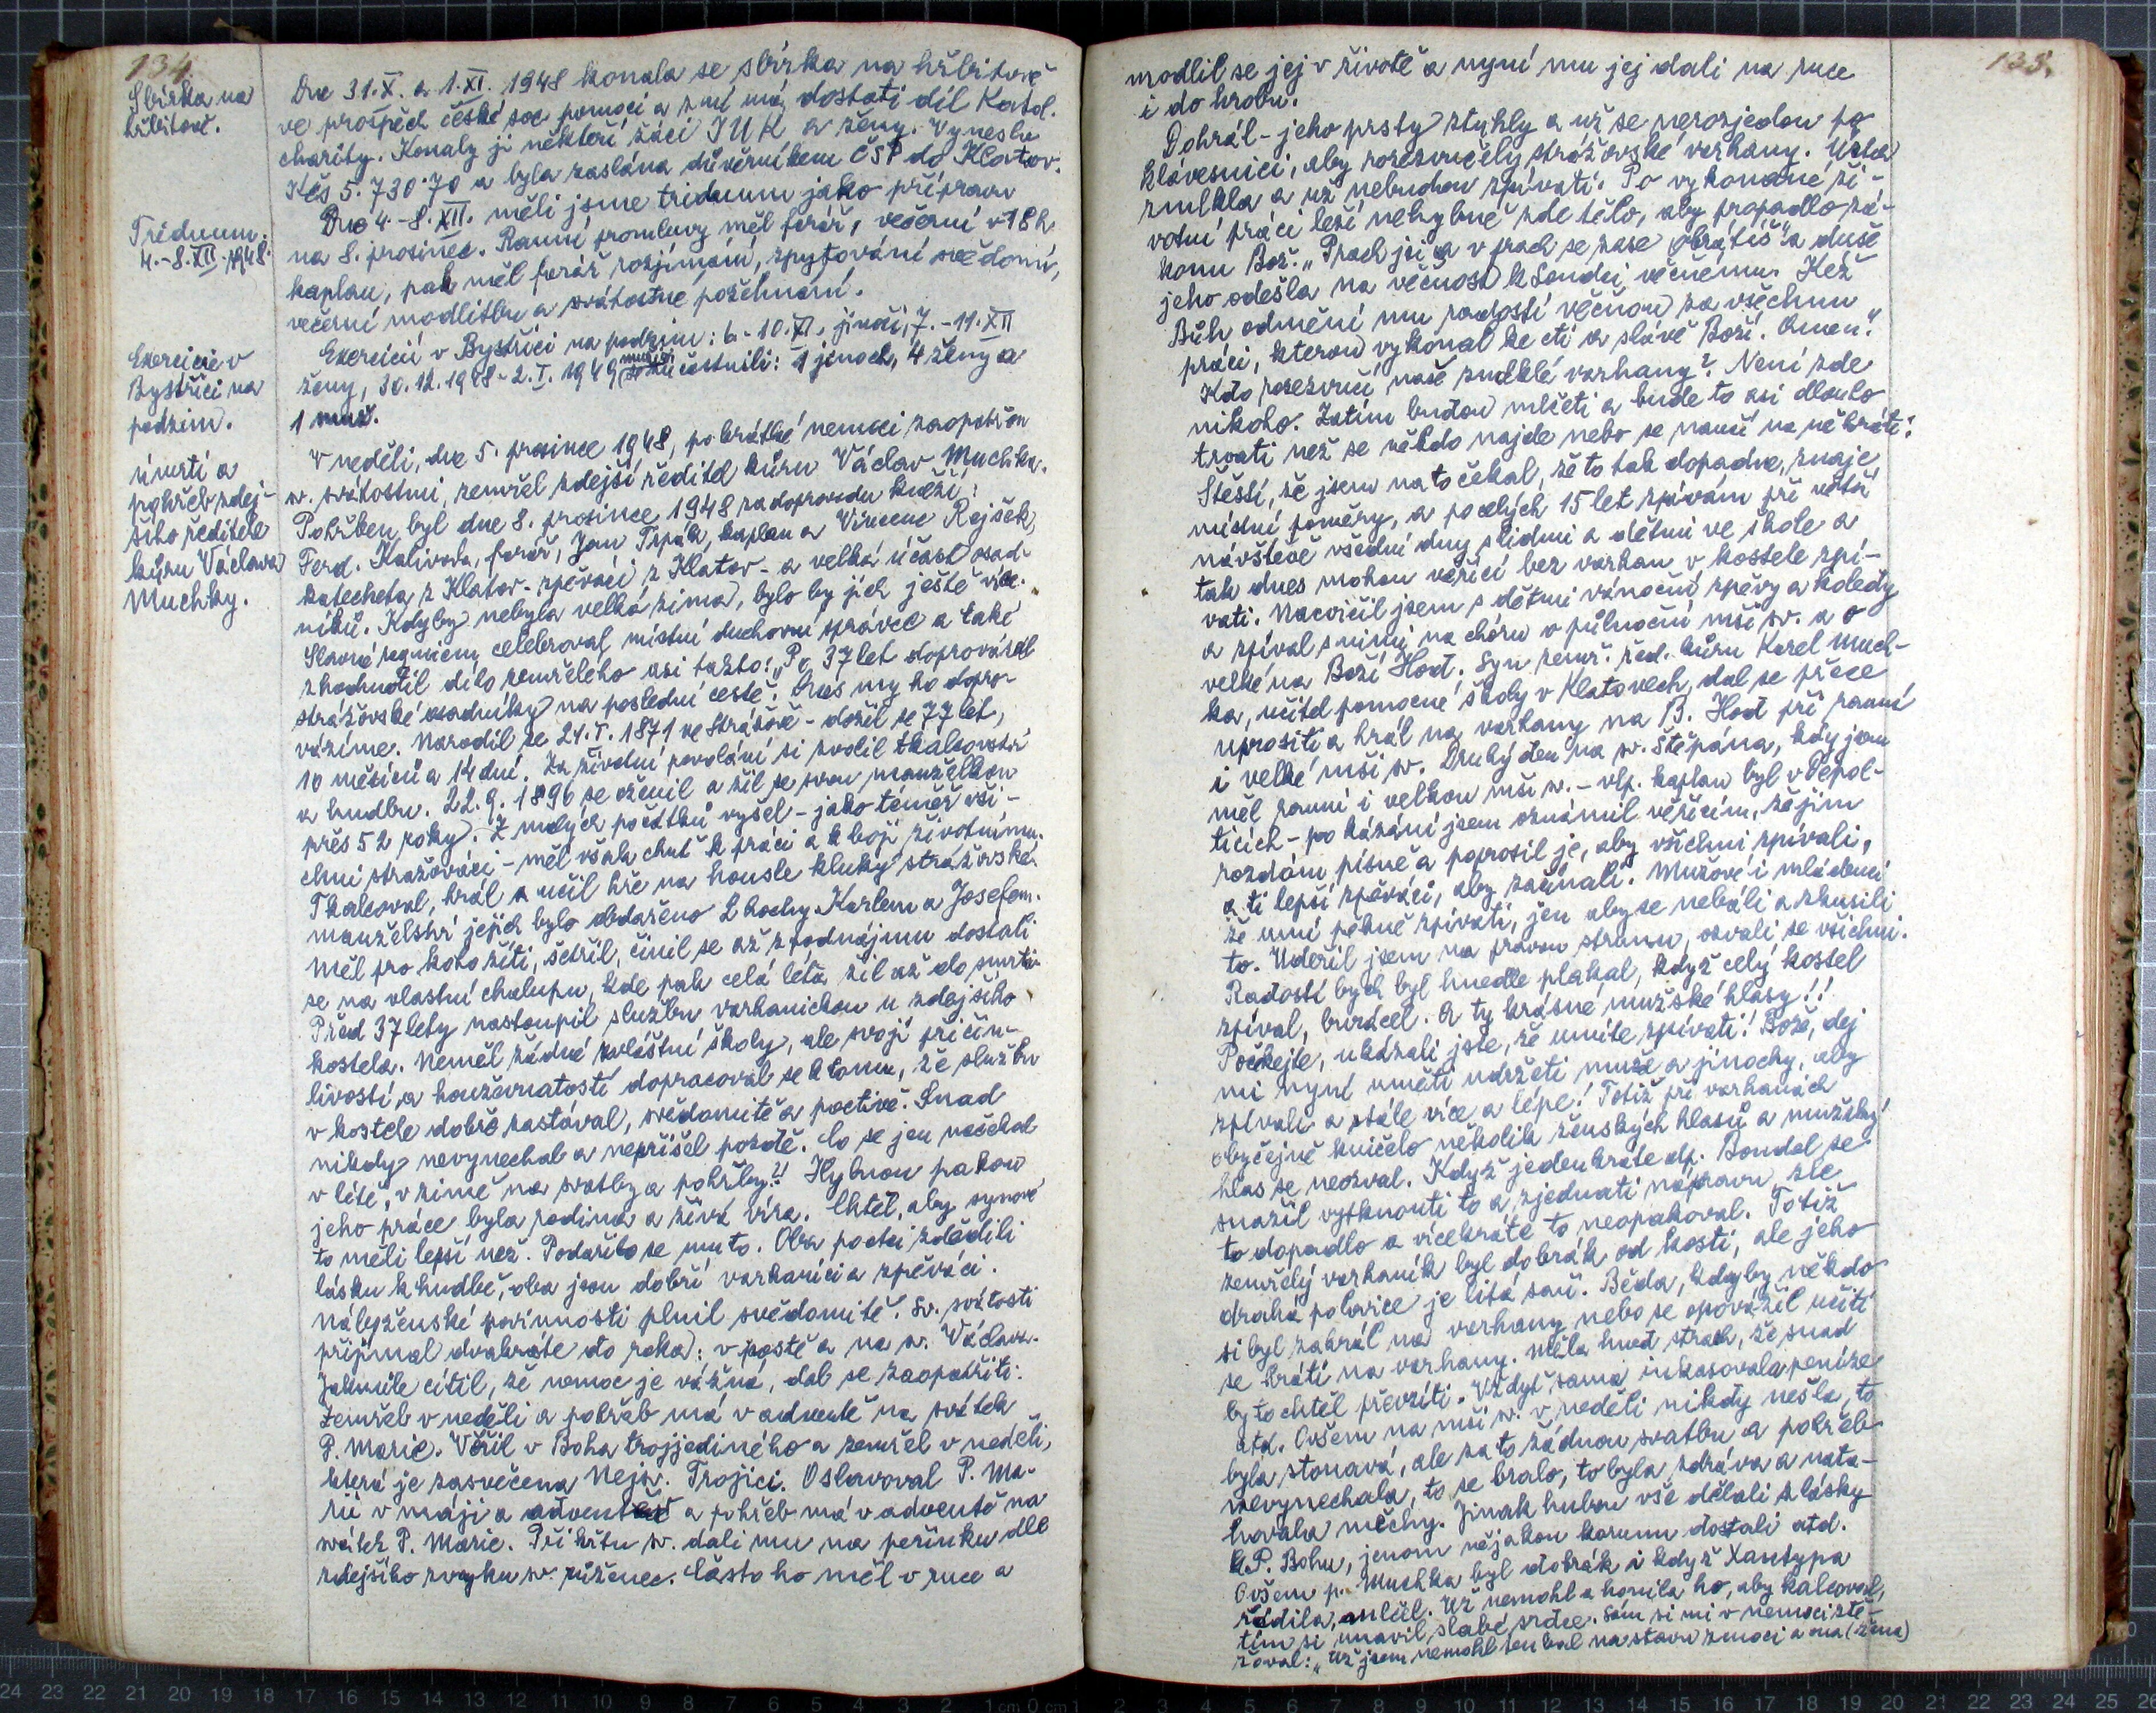 134
Sbírka na
hřbitově.
Dne 31.X. a 1.XI. 1948 konala se sbírka na hřbitově
ve prospěch české soc pomoci a z ní má dostati díl Katol.
charity. Konaly ji někteří žáci JUK a ženy. Vynesla
Kčs 5.730·70 a byla zaslána důvěrníkem ČSP do Klatov.
Triduum.
4.-8.XII.1948.
Dne 4.-8.XII. měli jsme triduum jako přípravu
na 8. prosinec. Ranní promluvy měl farář, večerní v 18 h
kaplan, pak měl farář rozjímání, zpytování svědomí,
večerní modlitbu a svátostné požehnání.
Exercicie v
Bystřici na
podzim.
Exercicií v Bystřici na podzim: 6-10.XI. jinoši, 7.-11.XII
ženy, 30.12.1948-2.I.1949 muži účastnili: 1 jinoch, 4 ženy a
1 muž.
úmrtí a
pohřeb zdej-
šího ředitele
kůru Václava
Muchky.
V neděli, dne 5. prosince 1948, po krátké nemoci zaopatřen
sv. svátostmi, zemřel zdejší ředitel kůru Václav Muchka.
Pohřben byl dne 8. prosince 1948 za doprovodu kněží:
Ferd. Kalivoda, farář, Jan Trpák, kaplan a Vincenc Rejšek,
katecheta z Klatov - zpěváci z Klatov - a velká účast osad-
níků. Kdyby nebyla velká zima, bylo by jich ještě více.
Slavné requiem celebroval místní duchovní správce a také
zhodnotil dílo zemřelého asi takto: „Po 37 let doprovázel
strážovské osadníky na poslední cestě. Dnes my ho dopro-
vázíme. Narodil se 21.I. 1871 ve Strážově - dožil se 77 let,
10 měsíců a 14 dní. Za životní povolání si zvolil tkalcovství
a hudbu. 22.9. 1896 se oženil a žil se svou manželkou
přes 52 roky. Z malých počátků vyšel - jako téměř vši-
chni strážováci - měl však chuť k práci a k boji životnímu.
Tkalcoval, hrál a učil hře na housle kluky strážovské.
Manželství jejich bylo obdařeno 2 hochy Karlem a Josefem.
Měl pro koho žíti, šetřil, činil se až z podnájmu dostali
se na vlastní chalupu, kde pak celá léta žil až do smrti.
Před 37 lety nastoupil službu varhanickou u zdejšího
kostela. Neměl žádné zvláštní školy, ale svojí přičin-
livostí a houževnatostí dopracoval se k tomu, že službu
v kostele dobře zastával, svědomitě a poctivě. Snad
nikdy nevynechal a nepřišel pozdě. Co se jen načekal
v létě, v zimě na svatby a pohřby?! Hybnou pakou
jeho práce byla rodina a živá víra. Chtěl, aby synové
to měli lepší než. Podařilo se mu to. Oba po otci zdědili
lásku k hudbě, oba jsou dobří varhaníci a zpěváci.
Náboženské povinnosti plnil svědomitě. Sv. svátosti
přijímal dvakráte do roka: v postě a na sv. Václava.
Jakmile cítil, že nemoc je vážná, dal se zaopatřiti.
Zemřel v neděli a pohřeb má v adventě na svátek
P. Marie. Věřil v Boha trojjediného a zemřel v neděli,
která je zasvěcena Nejsv. Trojici. Oslavoval P. Ma-
rii v máji a adventě a pohřeb má v adventě na
svátek P. Marie. Při křtu sv. dali mu na peřinku dle
zdejšího zvyku sv. růženec. Často ho měl v ruce a
135.
modlil se jej v životě a nyní mu jej dali na ruce
i do hrobu.
Dohrál - jeho prsty ztuhly a už se nerozjedou po
klávesnici, aby rozezvučely strážovské varhany. Ústa
zmlkla a už nebudou zpívati. Po vykonané ži-
votní práci leží nehybně zde tělo, aby propadlo zá-
konu Bož. „Prach jsi a v prach se zase obrátíš" a duše
jeho odešla na věčnost k Soudci věčnému. Kéž
Bůh odmění mu radostí věčnou za všechnu
práci, kterou vykonal ke cti a slávě Boží. Amen."
Kdo rozezvučí naše zmlklé varhany? Není zde
nikoho. Zatím budou mlčeti a bude to asi dlouho
trvati než se někdo najde nebo se naučí na ně hráti.
Štěstí, že jsem na to čekal, že to tak dopadne, znaje
místní poměry, a po celých 15 let zpívám při větší
návštěvě všední dny s lidmi a dětmi ve škole a
tak dnes mohou věřící bez varhan v kostele zpí-
vati. Nacvičil jsem s dětmi vánoční zpěvy a koledy
a zpíval s nimi na chóru o půlnoční mši sv. a o
velké na Boží Hod. Syn zemř. řed. kůru Karel Much-
ka, učitel pomocné školy v Klatovech, dal se přece
uprositi a hrál na varhany na B. Hod při ranní
i velké mši sv. Druhý den na sv. Štěpána, kdy jsem
měl ranní i velkou mši sv. - vlp. kaplan byl v Depol-
ticích - po kázání jsem oznámil věřícím, že jim
rozdám písně a poprosil je, aby všichni zpívali,
a ti lepší zpěváci, aby začínali. Mužové i mládenci
že umí pěkně zpívati, jen aby se nebáli a zkusili
to. Udeřil jsem na pravou strunu, ozvali se všichni.
Radostí bych byl hnedle plakal, když celý kostel
zpíval, burácel. A ty krásné mužské hlasy!!
Počkejte, ukázali jste, že umíte zpívati! Bože, dej
mi nyní uměti udržeti muže a jinochy, aby
zpívali a stále více a lépe! Totiž při varhanách
obyčejně kvičelo několik ženských hlasů a mužský
hlas se neozval. Když jedenkráte dp. Boudal se
snažil vytknouti to a zjednati nápravu, zle
to dopadlo a vícekráte to neopakoval. Totiž
zemřelý varhaník byl dobrák od kosti, ale jeho
drahá polovice je litá saň. Běda, kdyby někdo
si byl zahrál na varhany nebo se opovážil učiti
se hráti na varhany. Měla hned strach, že snad
by to chtěl převzíti. Vždyť sama inkasovala peníze
atd. Ovšem na mši sv. v neděli nikdy nešla, to
byla stonavá, ale za to žádnou svatbu a pohřeb
nevynechala, to se bralo, to byla zdráva a nata-
hovala měchy. Jinak hubou vše dělali z lásky
k P. Bohu, jenom nějakou korunu dostali atd.
Ovšem p. Muchka byl dobrák i když Xantypa
řádila, mlčel. Už nemohl a honila ho, aby kalcoval,
tím si unavil slabé srdce. Sám si mi v nemoci stě-
žoval: „Už jsem nemohl ten kal na stavu zmoci a ona (žena)